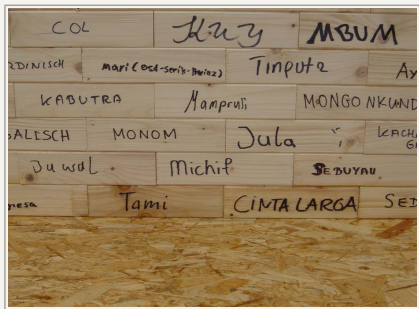 COL Kuy MBUM
RDINISCH Mari (Ost-Sepik-Provinz) Tinputz AY
KABUTRA Mampruli MONGO NKUND
ALISCH MONOM Jula KACHA
Juwal Michif SEBUYAU
nesa Tami CINTA LARGA SED